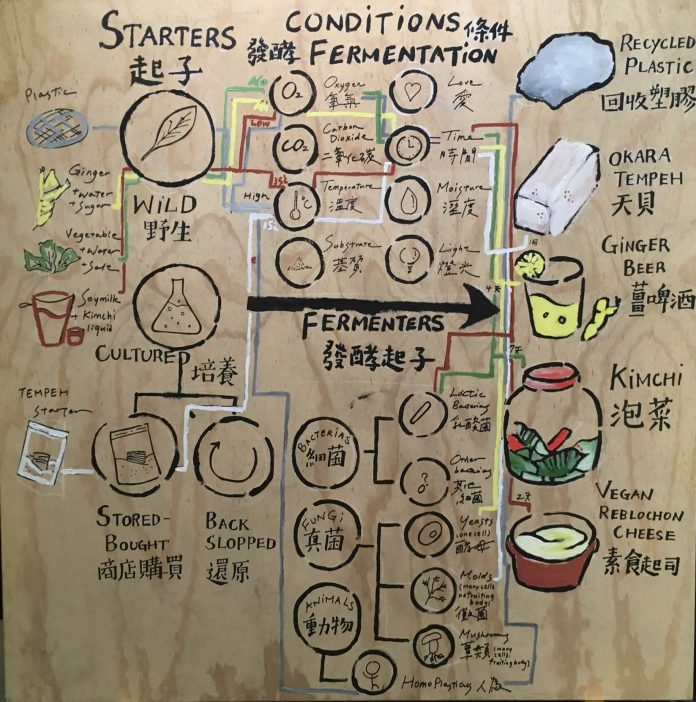 STARTERS
起子
CONDITIONS
發酵 FERMENTATION 條件
Plastic
Ginger
+ Water
+ Sugar
Vegetable
+ Water
+ Salt
Soymilk
+ Kimchi
liquid
WILD
野生
CULTURED
培養
TEMPEH
Starter
STORED-
BOUGHT
商店購買
BACK
SLOPPED
還原
Low
High
O₂
Oxygen
氧氣
CO₂
Carbon
Dioxide
二氧化碳
Temperature
溫度
Substrate
基質
Love
愛
Time
時間
Moisture
溼度
Light
燈光
FERMENTERS
發酵起子
BACTERIAS
細菌
FUNGI
真菌
ANIMALS
動物
Lactic
Bacterias
乳酸菌
Other
bacterias
其他
細菌
Yeasts
(one cell)
酵母
Molds
(many cells
no fruiting
body)
黴菌
Mushrooms
蕈類 (many
cells.
fruiting body)
Homo Plasticus
7天
2天
RECYCLED
PLASTIC
回收塑膠
OKARA
TEMPEH
天貝
GINGER
BEER
薑啤酒
KIMCHI
泡菜
VEGAN
REBLOCHON
CHEESE
素食起司